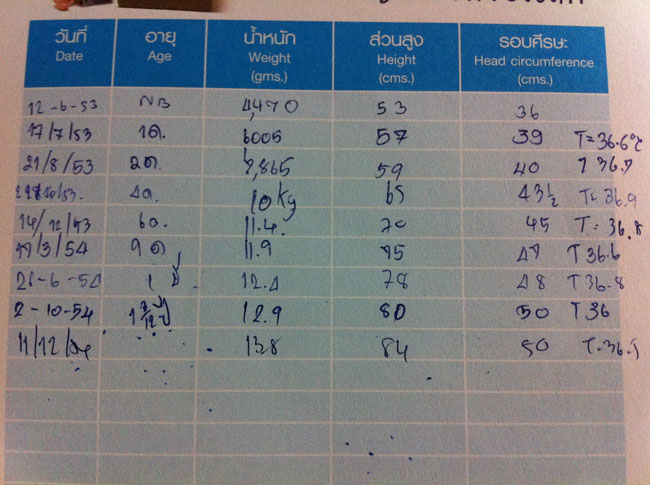 วันที่ อายุ น้ำหนัก ส่วนสูง รอบศีรษะ
Date Age Weight Height Head circumference
(gms.) (cms.) (cms.)
12-6-53 NB 4,470 53 36
17/7/53 1ด. 6005 57 39 T=36.6°C
21/8/53 2ด. 7,865 59 40 T 36.7
4ด. 10 kg 65 43½ T= 36.9
14/12/53 6ด. 11.4 70 45 T= 36.8
/3/54 9ด 11.9 75 47 T 36.6
-6-54 1 ปี 12.4 78 48 T36.8
2-10-54 12.9 80 50 T36
11/12/54 13.8 84 50 T.36.5